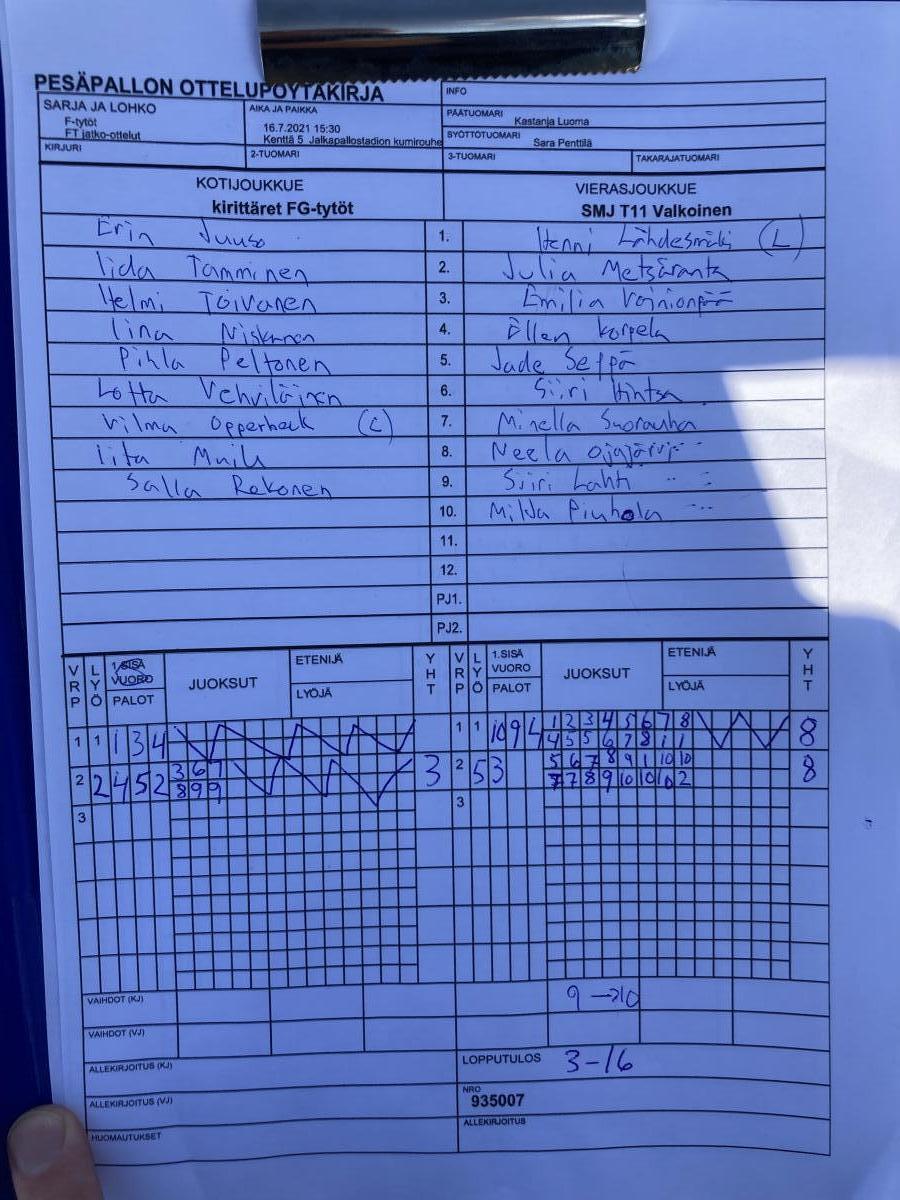 PESÄPALLON OTTELUPÖYTÄKIRJA
INFO
SARJA JA LOHKO
F-tytöt
FT jatko-ottelut
AIKA JA PAIKKA
16.7.2021 15:30
Kenttä 5 Jalkapallostadion kumirouhe
PÄÄTUOMARI
Kastanja Luoma
SYÖTTÖTUOMARI
Sara Penttilä
KIRJURI
2-TUOMARI
3-TUOMARI
TAKARAJATUOMARI
KOTIJOUKKUE
kirittäret FG-tytöt
VIERASJOUKKUE
SMJ T11 Valkoinen
Erin Juuso 1. Henni Lähdesmäki (L)
Iida Tamminen 2. Julia Metsäranta
Helmi Toivanen 3. Emilia Vainionpää
Iina Niskanen 4. Ellen Korpela
Pihla Peltonen 5. Jade Seppä
Lotta Vehviläinen 6. Siiri Hintsa
Vilma Opperbeck (C) 7. Minella Suorauha
Iita 8. Neela Ojajärvi
Salla Rekonen 9. Siiri Lahti
10.
11.
12.
PJ1.
PJ2.
VRP LYÖ 1.SISÄ VUORO PALOT JUOKSUT ETENIJÄ LYÖJÄ YHT VRP LYÖ 1.SISÄ VUORO PALOT JUOKSUT ETENIJÄ LYÖJÄ YHT
1 1 1 3 4 1 1 10 9 4 1 2 3 4 5 6 7 8 8
4 5 5 6 7 8 1 1
2 2 4 5 2 3 6 7 3 2 5 3 5 6 7 8 9 1 10 10 8
8 9 9 7 7 8 9 10 10 10 2
3 3
VAIHDOT (KJ) 9 → 10
VAIHDOT (VJ)
ALLEKIRJOITUS (KJ)
LOPPUTULOS 3-16
ALLEKIRJOITUS (VJ)
NRO
935007
HUOMAUTUKSET
ALLEKIRJOITUS